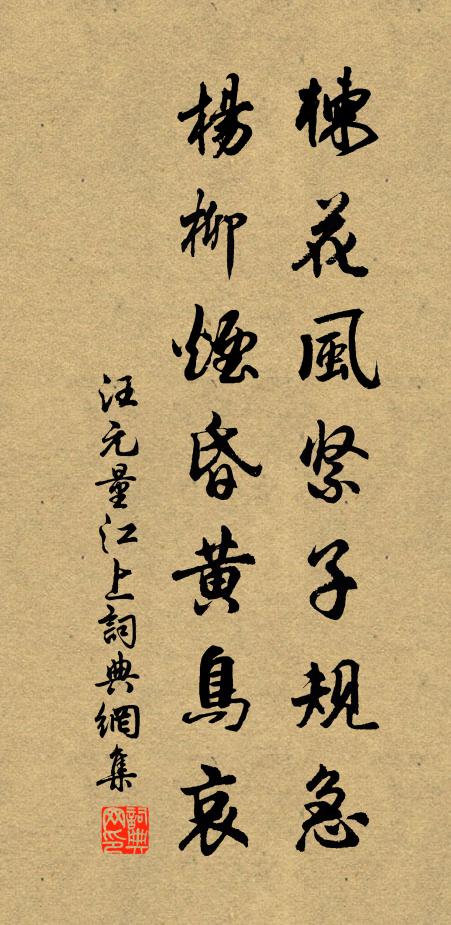 楝花風緊子規急
楊柳煙昏黃鳥哀
汪元量江上詞典網集
詞典網印